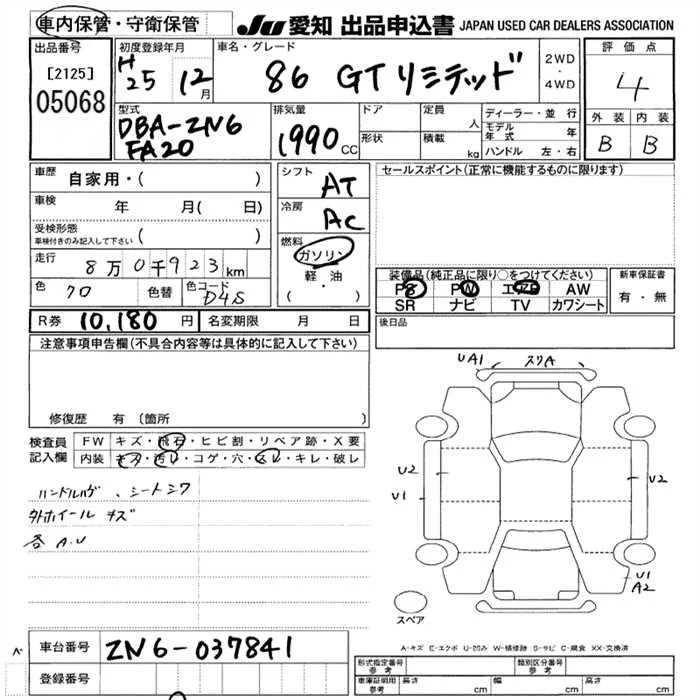 車内保管・守衛保管
JU 愛知 出品申込書 JAPAN USED CAR DEALERS ASSOCIATION
出品番号
[2125]
05068
初度登録年月
H25 12月
車名・グレード
86 GTリミテッド
2WD・4WD
評価点
4
外装 内装
B B
型式
DBA-ZN6
FA20
排気量
1990 CC
ドア
形状
定員 人
積載 kg
ディーラー・並行
モデル年式 年
ハンドル 左・右
車歴 自家用・( )
車検 年 月( 日)
受検形態
車検付きのみ記入して下さい ( )
走行 8万0千923km
色 クロ 色替 色コード D4S
シフト AT
冷房 AC
燃料 ガソリン
軽・油
( ・ )
セールスポイント(正常に機能するものに限ります)
装備品(純正品に限り○をつけてください)
PS PW エアB AW
SR ナビ TV カワシート
新車保証書
有・無
R券 10,180円 名変期限 月 日
後日品
注意事項申告欄(不具合内容等は具体的に記入して下さい)
修復歴 有(箇所 )
検査員記入欄
FW キズ・飛石・ヒビ割・リペア跡・X要
内装 キズ・汚レ・コゲ・穴・スレ・キレ・破レ
ハンドルハゲ、シートシワ
外ホイール キズ
各 A.U
UA1 スリA
U2
U1
U2
U1
A2
スペア
A-キズ E-エクボ U-凹み W-補修跡 S-サビ C-腐食 XX-交換済
車台番号 ZN6-037841
登録番号
形式指定番号 参考
類別区分番号 参考
車庫証明用 参考 長さ cm 幅 cm 高さ cm